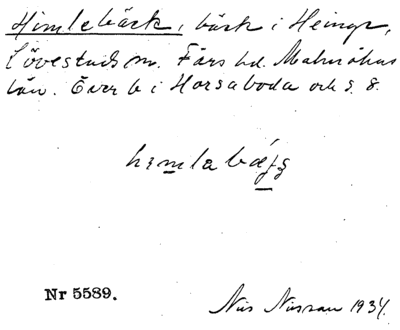 Himlebäck, bäck i Heinge,
Lövestads sn. Färs hd. Malmöhus
län. Även b i Horsaboda och s. 8.
hemlabæʃɛ
Nr 5589.
Nils Nilsson 1934.